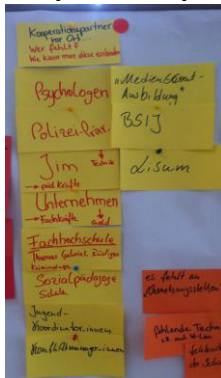 Kooperationspartner
vor Ort
Wer fehlt?
Wie kann man diese einbinden
Psychologen
Polizei
Jim
Technik
→ päd. Kräfte
Unternehmen
→ Fachkräfte
Geld
Fachhochschule
Thomas Gabriel,
Sozialpädagoge
Schule
Jugend-
koordinator.innen
Konfliktmanager.innen
„Medien
Ausbildung"
BSIJ
Lisum
es fehlt an
Vernetzungsstellen
fehlende Technik